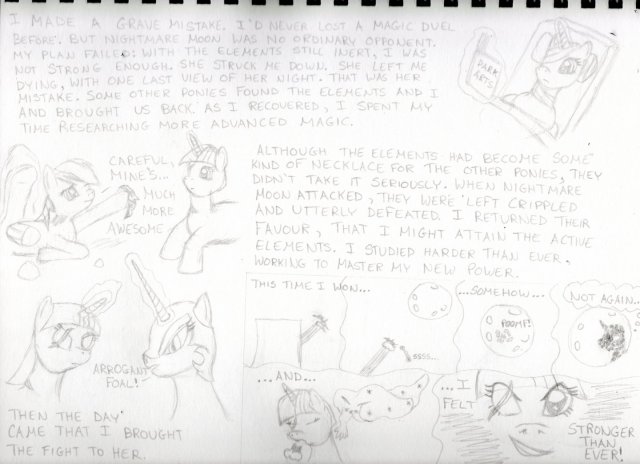 I MADE A GRAVE MISTAKE. I'D NEVER LOST A MAGIC DUEL
BEFORE. BUT NIGHTMARE MOON WAS NO ORDINARY OPPONENT.
MY PLAN FAILED: WITH THE ELEMENTS STILL INERT, I WAS
NOT STRONG ENOUGH. SHE STRUCK ME DOWN. SHE LEFT ME
DYING, WITH ONE LAST VIEW OF HER NIGHT. THAT WAS HER
MISTAKE. SOME OTHER PONIES FOUND THE ELEMENTS AND I
AND BROUGHT US BACK. AS I RECOVERED, I SPENT MY
TIME RESEARCHING MORE ADVANCED MAGIC.
DARK
ARTS
CAREFUL,
MINE'S...
MUCH
MORE
AWESOME
ALTHOUGH THE ELEMENTS HAD BECOME SOME
KIND OF NECKLACE FOR THE OTHER PONIES, THEY
DIDN'T TAKE IT SERIOUSLY. WHEN NIGHTMARE
MOON ATTACKED, THEY WERE LEFT CRIPPLED
AND UTTERLY DEFEATED. I RETURNED THEIR
FAVOUR, THAT I MIGHT ATTAIN THE ACTIVE
ELEMENTS. I STUDIED HARDER THAN EVER.
WORKING TO MASTER MY NEW POWER.
ARROGANT
FOAL!
THEN THE DAY
CAME THAT I BROUGHT
THE FIGHT TO HER.
THIS TIME I WON...
SSSS...
...SOMEHOW...
POOMF!
NOT AGAIN...
...AND...
...I
FELT
STRONGER
THAN
EVER!